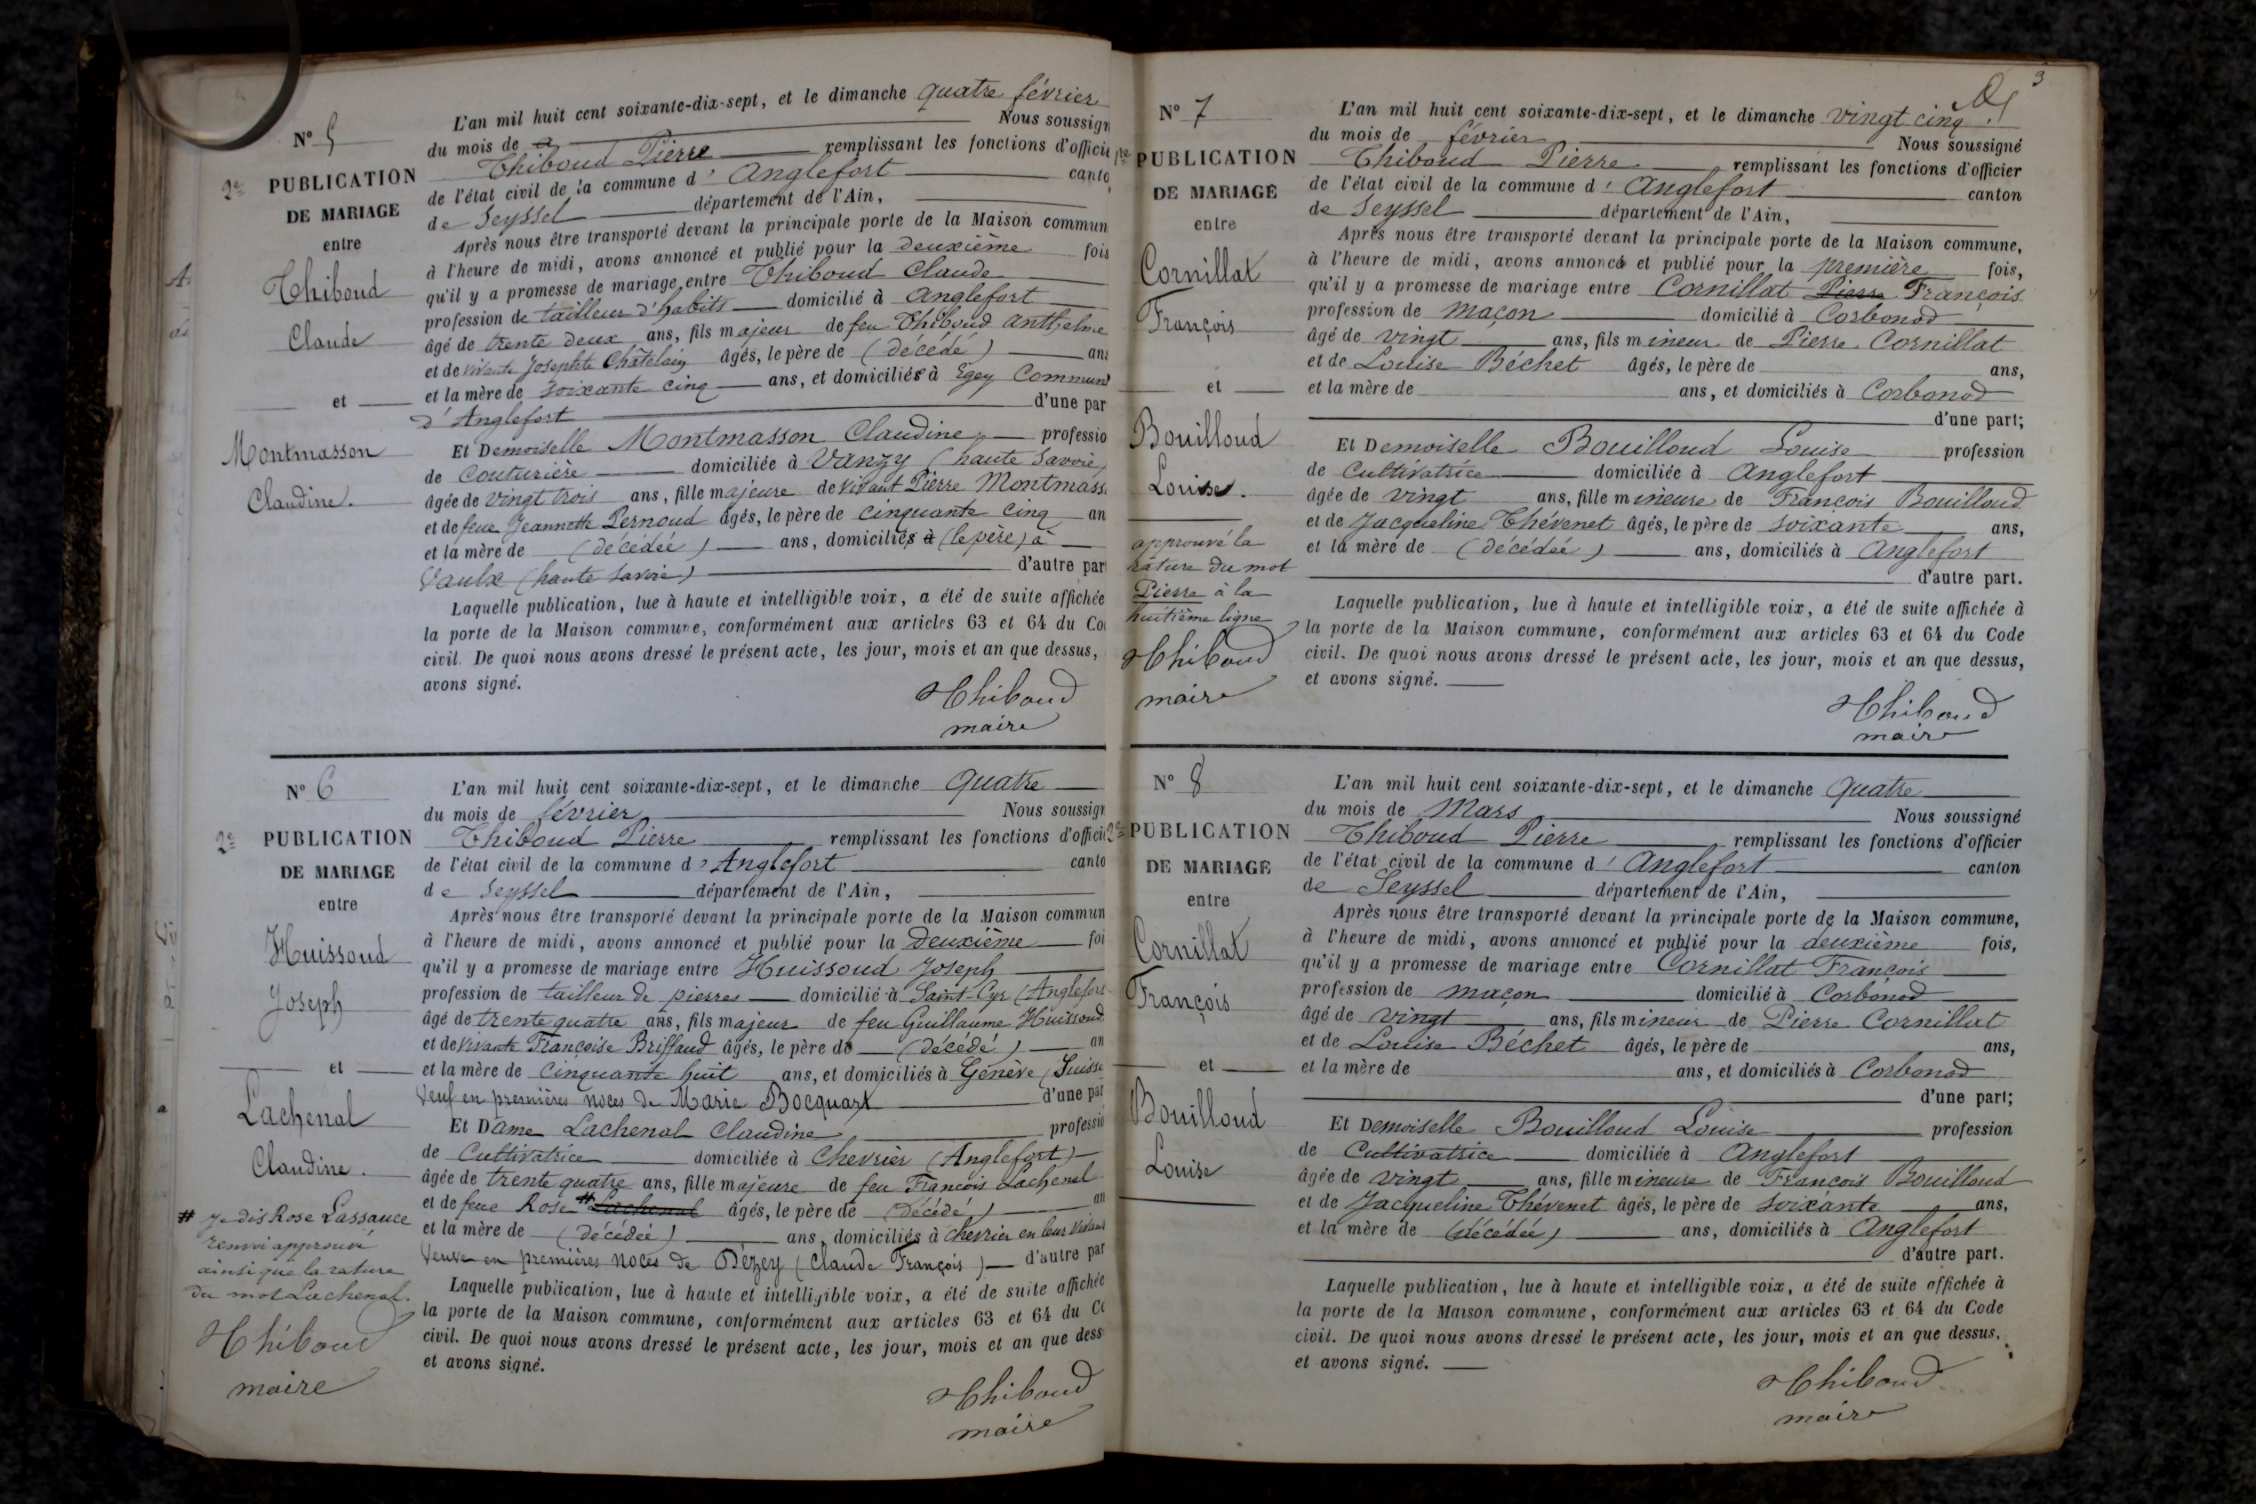 N° 5
2e PUBLICATION
DE MARIAGE
entre
Thiboud
Claude
et
Montmasson
Claudine.
L'an mil huit cent soixante-dix-sept, et le dimanche quatre février
du mois de Nous soussign
Thiboud Pierre remplissant les fonctions d'officie
de l'état civil de la commune d' Anglefort canto
de Seyssel département de l'Ain,
Après nous être transporté devant la principale porte de la Maison commun
à l'heure de midi, avons annoncé et publié pour la deuxième fois
qu'il y a promesse de mariage entre Thiboud Claude
profession de tailleur d'habits domicilié à Anglefort
âgé de trente deux ans, fils majeur de feu Thiboud Anthelme
et de vivante Josephte Chatelain âgés, le père de (décédé) ans
et la mère de soixante cinq ans, et domiciliés à Egey Commune
d'Anglefort d'une par
Et Demoiselle Montmasson Claudine professio
de Couturière domiciliée à Vanzy (haute Savoie)
âgée de vingt trois ans, fille majeure de vivant Pierre Montmass
et de feue Jeannette Pernoud âgés, le père de cinquante cinq an
et la mère de (décédée) ans, domiciliés à (le père) à
Vaulx (haute Savoie) d'autre par
Laquelle publication, lue à haute et intelligible voix, a été de suite affichée
la porte de la Maison commune, conformément aux articles 63 et 64 du Co
civil. De quoi nous avons dressé le présent acte, les jour, mois et an que dessus,
avons signé.
Thiboud
maire
N° 6
2e PUBLICATION
DE MARIAGE
entre
Huissoud
Joseph
et
Lachenal
Claudine.
# Je dis Rose Lassauce
renvoi approuvé
ainsi que la rature
du mot Lachenal.
Thiboud
maire
L'an mil huit cent soixante-dix-sept, et le dimanche quatre
du mois de février Nous soussign
Thiboud Pierre remplissant les fonctions d'officie
de l'état civil de la commune d' Anglefort canto
de Seyssel département de l'Ain,
Après nous être transporté devant la principale porte de la Maison commun
à l'heure de midi, avons annoncé et publié pour la deuxième foi
qu'il y a promesse de mariage entre Huissoud Joseph
profession de tailleur de pierres domicilié à Saint-Cyr (Anglefort
âgé de trente quatre ans, fils majeur de feu Guillaume Huissoud
et de vivante Françoise Briffaud âgés, le père de (décédé) an
et la mère de cinquante huit ans, et domiciliés à Genève (Suisse
Veuf en premières noces de Marie Bocquart d'une par
Et Dame Lachenal Claudine professio
de Cultivatrice domiciliée à Chevrier (Anglefort)
âgée de trente quatre ans, fille majeure de feu François Lachenal
et de feue Rose # Lachenal âgés, le père de (décédé) an
et la mère de (décédée) ans, domiciliés à Chevrier en leur vivant
Veuve en premières noces de Dézey (Claude François) d'autre par
Laquelle publication, lue à haute et intelligible voix, a été de suite affichée
la porte de la Maison commune, conformément aux articles 63 et 64 du Co
civil. De quoi nous avons dressé le présent acte, les jour, mois et an que dess
et avons signé.
Thiboud
maire
3
N° 7
1re PUBLICATION
DE MARIAGE
entre
Cornillat
François
et
Bouilloud
Louise.
approuvé la
rature du mot
Pierre à la
huitième ligne
Thiboud
maire
L'an mil huit cent soixante-dix-sept, et le dimanche vingt cinq
du mois de février Nous soussigné
Thiboud Pierre remplissant les fonctions d'officier
de l'état civil de la commune d' Anglefort canton
de Seyssel département de l'Ain,
Après nous être transporté devant la principale porte de la Maison commune,
à l'heure de midi, avons annoncé et publié pour la première fois,
qu'il y a promesse de mariage entre Cornillat Pierre François
profession de maçon domicilié à Corbonod
âgé de vingt ans, fils mineur de Pierre Cornillat
et de Louise Béchet âgés, le père de ans,
et la mère de ans, et domiciliés à Corbonod
d'une part;
Et Demoiselle Bouilloud Louise profession
de Cultivatrice domiciliée à Anglefort
âgée de vingt ans, fille mineure de François Bouilloud
et de Jacqueline Thévenet âgés, le père de soixante ans,
et la mère de (décédée) ans, domiciliés à Anglefort
d'autre part.
Laquelle publication, lue à haute et intelligible voix, a été de suite affichée à
la porte de la Maison commune, conformément aux articles 63 et 64 du Code
civil. De quoi nous avons dressé le présent acte, les jour, mois et an que dessus,
et avons signé.
Thiboud
maire
N° 8
2e PUBLICATION
DE MARIAGE
entre
Cornillat
François
et
Bouilloud
Louise
L'an mil huit cent soixante-dix-sept, et le dimanche quatre
du mois de Mars Nous soussigné
Thiboud Pierre remplissant les fonctions d'officier
de l'état civil de la commune d' Anglefort canton
de Seyssel département de l'Ain,
Après nous être transporté devant la principale porte de la Maison commune,
à l'heure de midi, avons annoncé et publié pour la deuxième fois,
qu'il y a promesse de mariage entre Cornillat François
profession de maçon domicilié à Corbonod
âgé de vingt ans, fils mineur de Pierre Cornillat
et de Louise Béchet âgés, le père de ans,
et la mère de ans, et domiciliés à Corbonod
d'une part;
Et Demoiselle Bouilloud Louise profession
de Cultivatrice domiciliée à Anglefort
âgée de vingt ans, fille mineure de François Bouilloud
et de Jacqueline Thévenet âgés, le père de soixante ans,
et la mère de (décédée) ans, domiciliés à Anglefort
d'autre part.
Laquelle publication, lue à haute et intelligible voix, a été de suite affichée à
la porte de la Maison commune, conformément aux articles 63 et 64 du Code
civil. De quoi nous avons dressé le présent acte, les jour, mois et an que dessus,
et avons signé.
Thiboud
maire